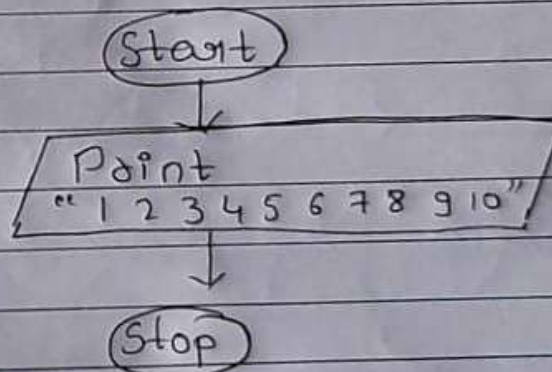 Start
Print
“ 1 2 3 4 5 6 7 8 9 10”
Stop